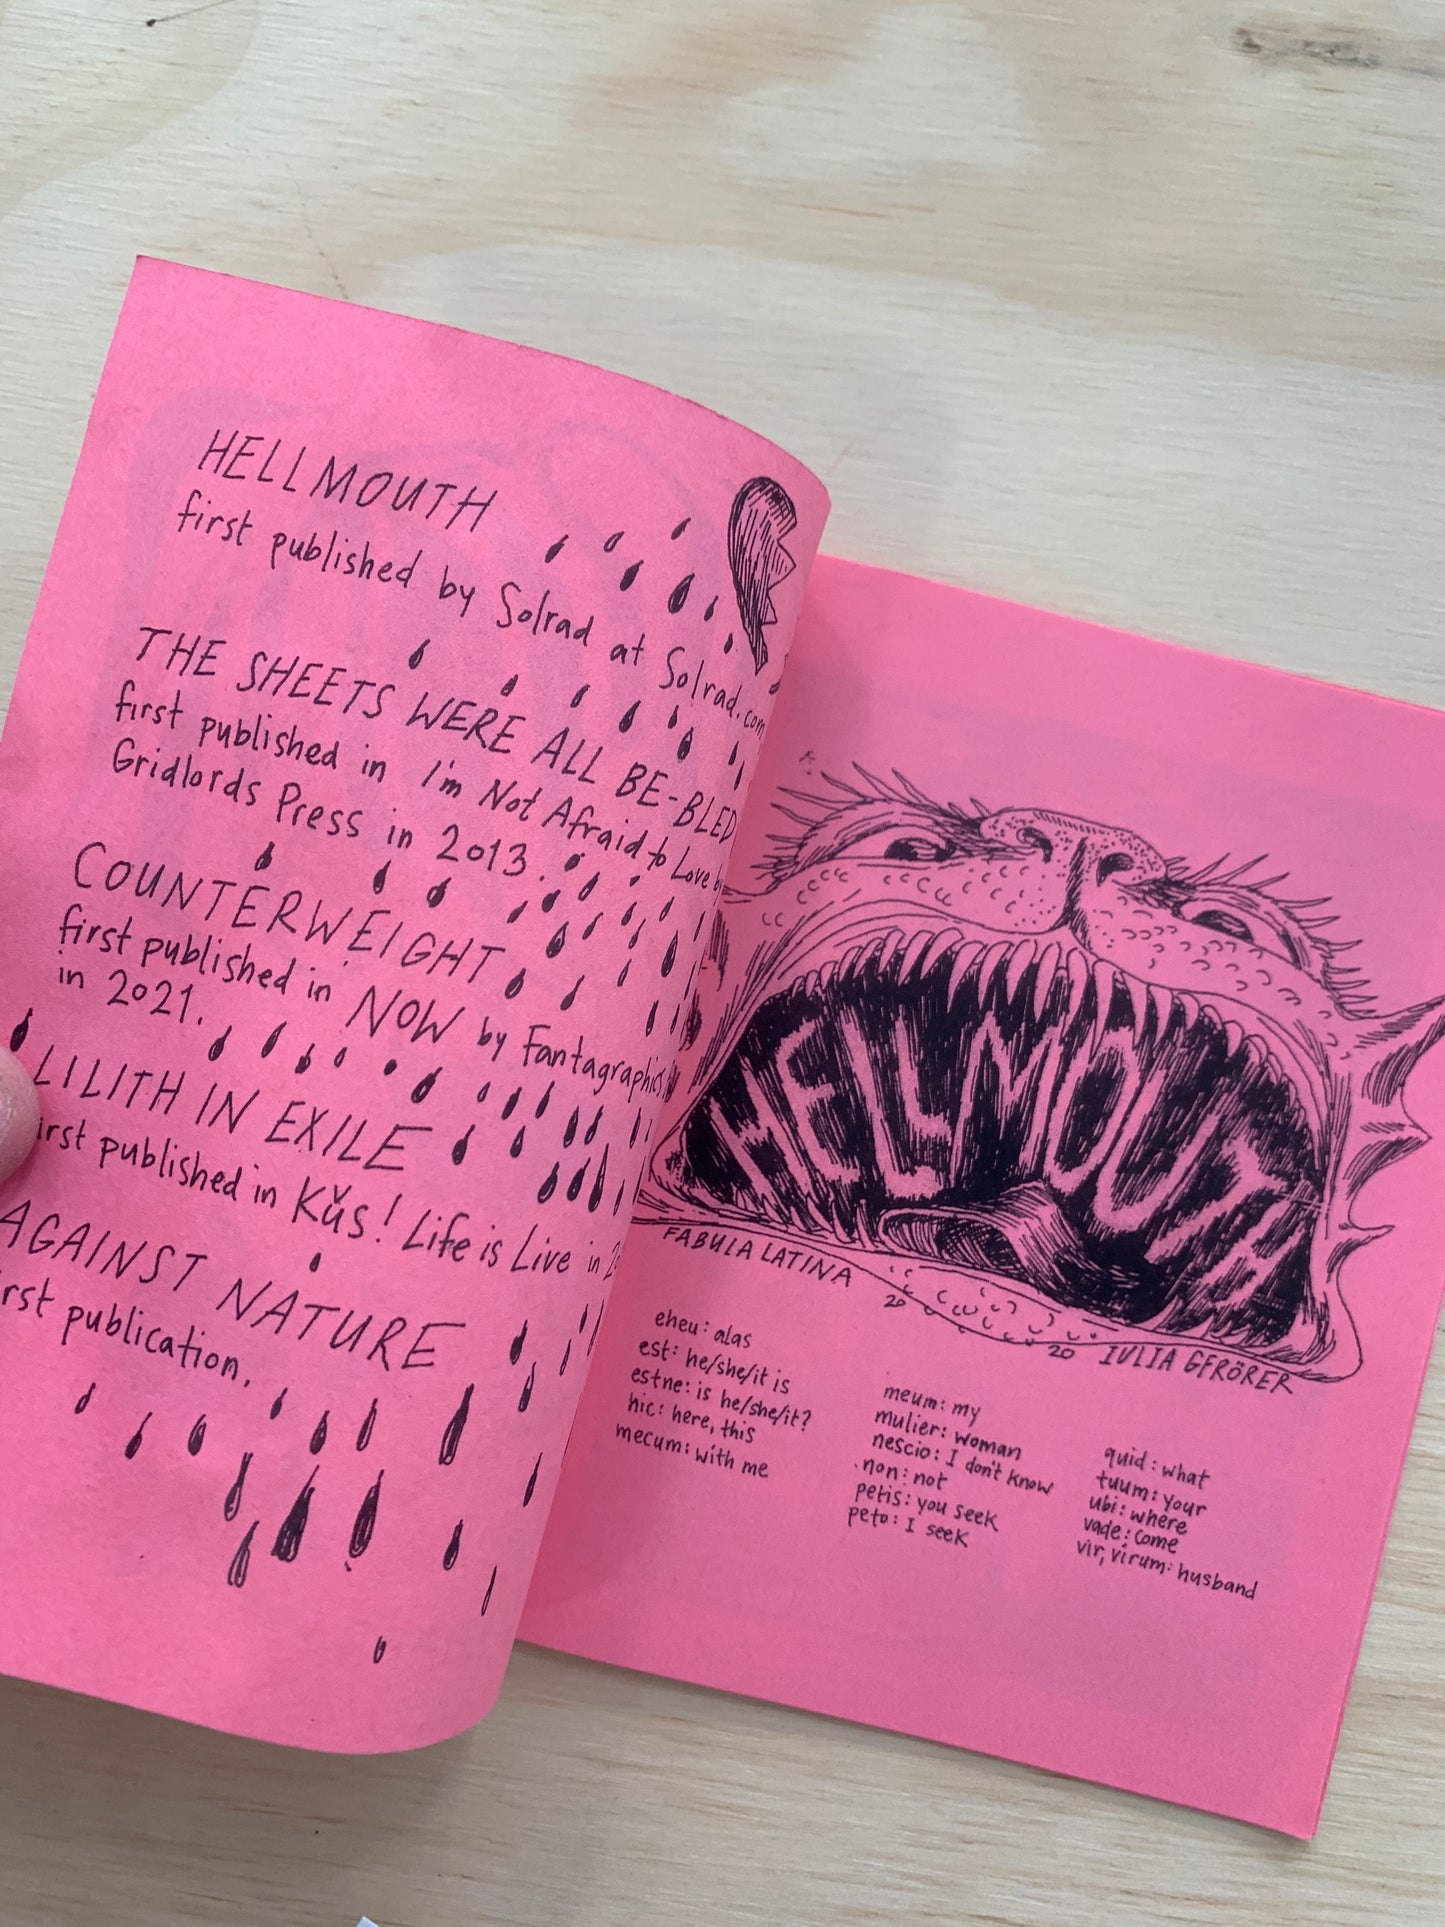 HELLMOUTH
first published by Solrad at Solrad.com
THE SHEETS WERE ALL BE-BLED
first published in I'm Not Afraid to Love by
Gridlords Press in 2013.
COUNTERWEIGHT
first published in NOW by Fantagraphics
in 2021.
LILITH IN EXILE
first published in Kuš! Life is Live in
AGAINST NATURE
first publication.
HELLMOUTH
FABULA LATINA
20 20
IULIA GFRÖRER
eheu: alas
est: he/she/it is
estne: is he/she/it?
hic: here, this
mecum: with me
meum: my
mulier: woman
nescio: I don't know
non: not
petis: you seek
peto: I seek
quid: what
tuum: your
ubi: where
vade: come
vir, virum: husband